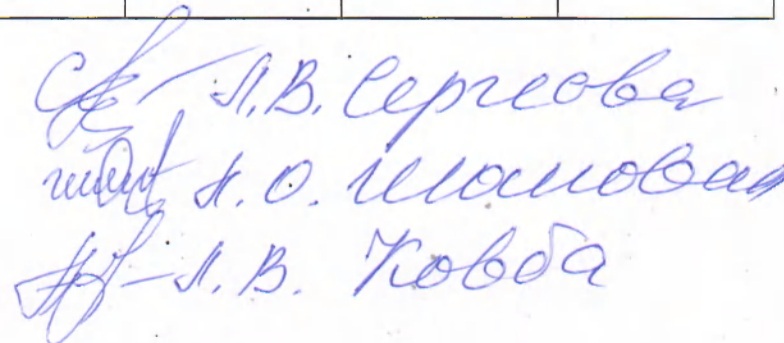 Л.В. Сергеова
Н.О. Шамовал
Л.В. Ковба